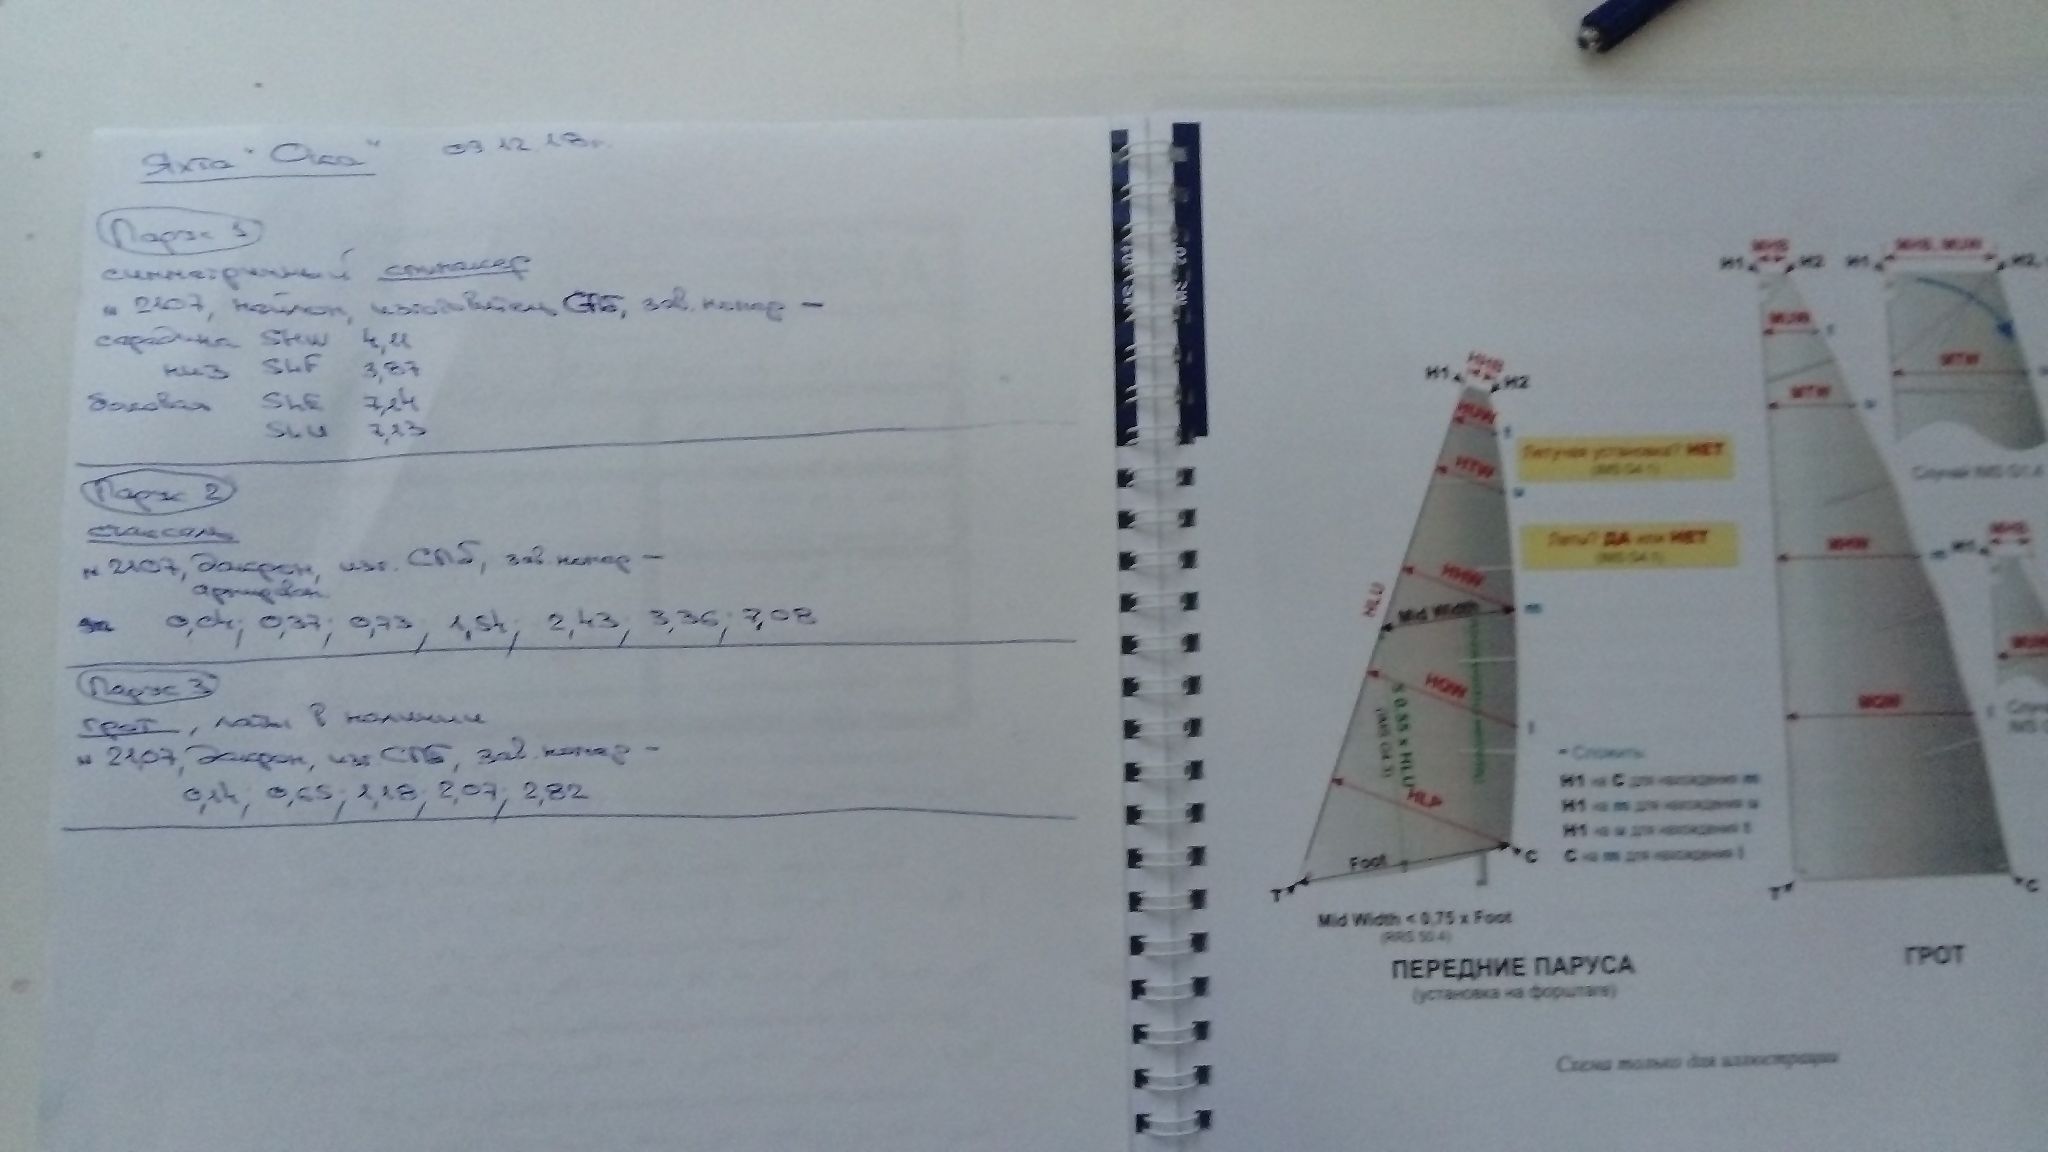 Яхта "Ока" 03 12 18г.
Парус 1
симметричный спинакер
№ 2107, нейлон, изготовитель СПБ, зав. номер –
середина SHW 4,11
низ SLF 3,87
боковая SLE 7,14
SLU 7,13
Парус 2
стаксель
№ 2107, Дакрон, изг. СПБ, зав. номер –
армирован
0,04; 0,37; 0,73; 1,54; 2,43; 3,36; 7,08
Парус 3
грот, латы в наличии
№ 2107, Дакрон, изг СПБ, зав. номер –
0,14; 0,65; 1,18; 2,07; 2,82
H1 HHB H2
HUW t
HTW u
HHW m
HLU
Mid Width
HQW l
≤ 0.55 x HLU
(IMS G4.1)
HLP
Foot
T C
Mid Width < 0,75 x Foot
(RRS 50.4)
ПЕРЕДНИЕ ПАРУСА
(установка на форштаге)
Летучая установка? НЕТ
(IMS G4.1)
Латы? ДА или НЕТ
(IMS G4.1)
= Сложить:
H1 на C для нахождения m
H1 на m для нахождения u
H1 на u для нахождения t
C на m для нахождения l
MHB
H1 H2
MUW t
MTW u
MHW m
MQW l
T C
ГРОТ
MHB, MUW
H1 H2,
MTW
Случай IMS G1.4
MHB
H1
MUW
Схема только для иллюстрации